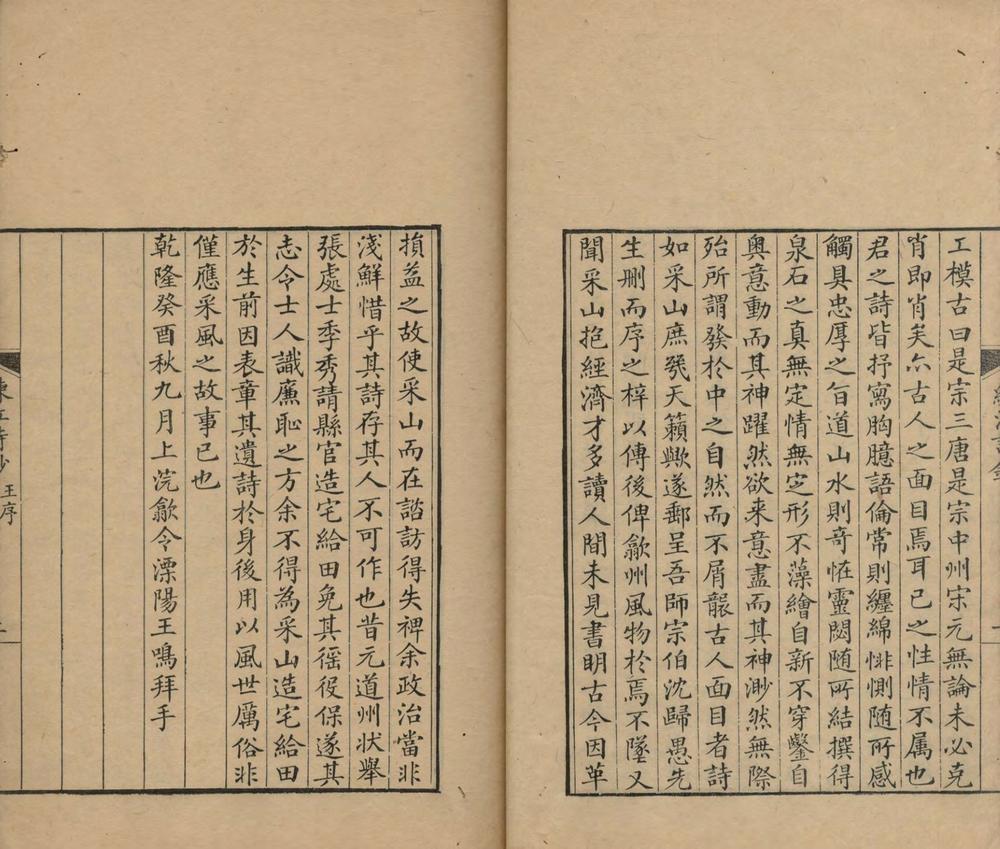 工模古曰是宗三唐是宗中州宋元無論未必克
肖即肖矣尒古人之面目焉耳已之性情不属也
君之詩皆抒寫胸臆語倫常則纏綿悱惻随所感
觸具忠厚之旨道山水則奇恠靈閟随所結撰得
泉石之真無定情無定形不藻繪自新不穿鑿自
奥意動而其神躍然欲来意盡而其神渺然無際
殆所謂發於中之自然而不屑襲古人面目者詩
如采山庶㡬天籟歟遂郵呈吾師宗伯沈歸愚先
生删而序之梓以傳後俾歙州風物於焉不墜又
聞采山抱經濟才多讀人間未見書明古今因革
損益之故使采山而在諮訪得失裨余政治當非
淺鮮惜乎其詩存其人不可作也昔元道州狀舉
張處士季秀請縣官造宅給田免其徭役保遂其
志令士人識廉恥之方余不得為采山造宅給田
於生前因表章其遺詩於身後用以風世厲俗非
僅應采風之故事已也
乾隆癸酉秋九月上浣歙令溧陽王鳴拜手
王序